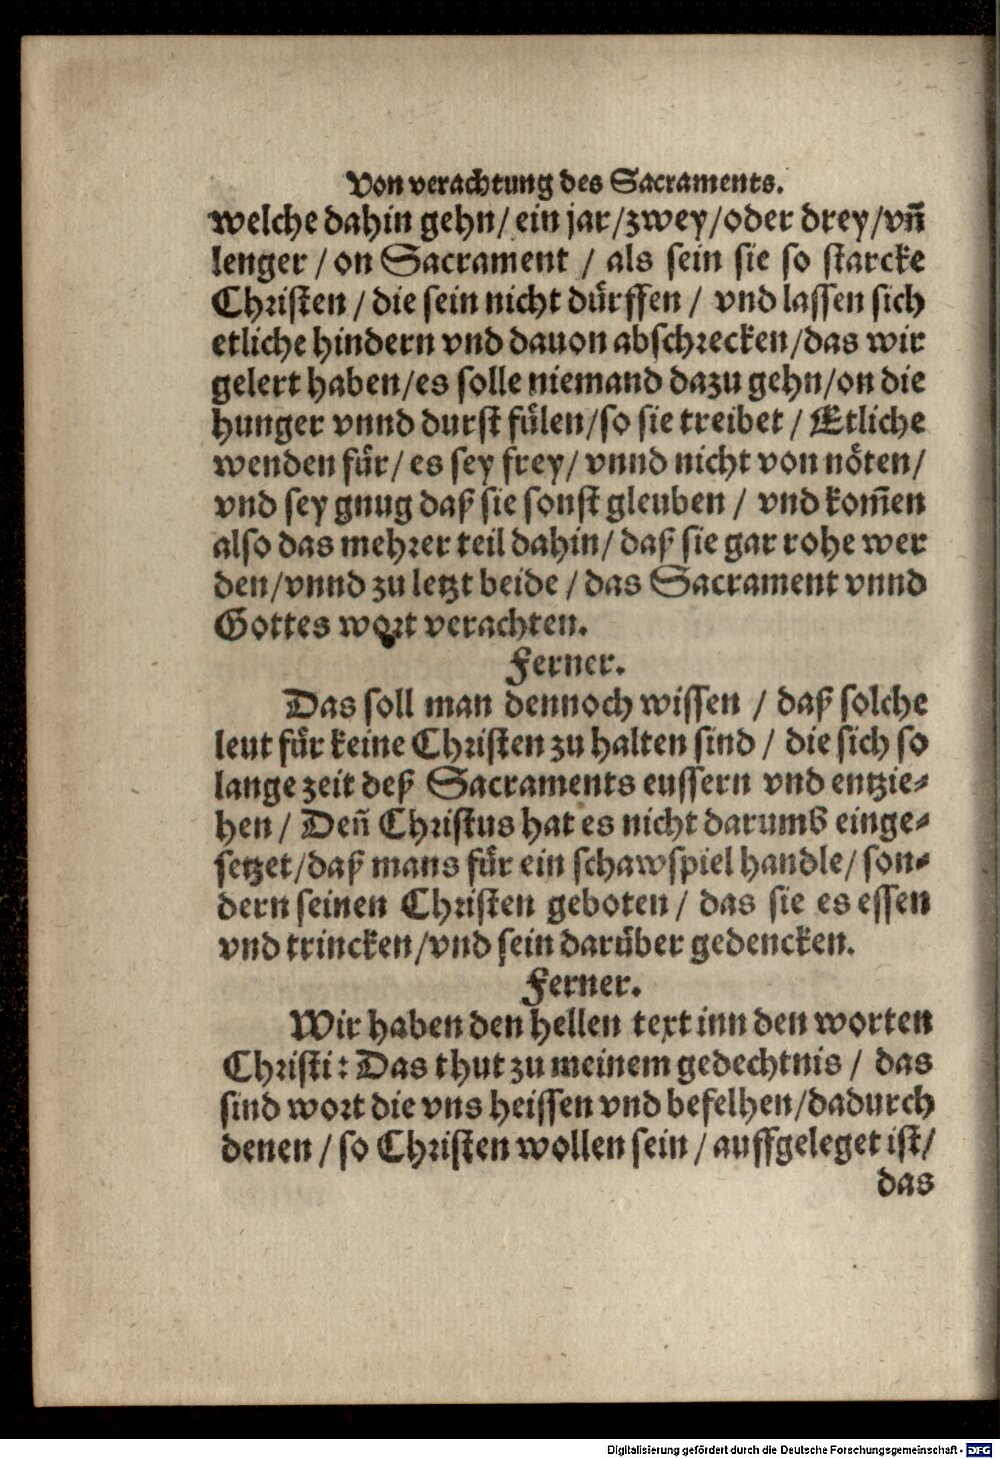 Von verachtung des Sacraments.
welche dahin gehn/ ein jar/zwey/oder drey/vñ
lenger / on Sacrament / als sein sie so starcke
Christen / die sein nicht dürffen / vnd lassen sich
etliche hindern vnd dauon abschrecken/das wir
gelert haben/es solle niemand dazu gehn/on die
hunger vnnd durst fülen/so sie treibet / Etliche
wenden für/ es sey frey/ vnnd nicht von nöten/
vnd sey gnug daß sie sonst gleuben / vnd kom̃en
also das mehrer teil dahin/ daß sie gar rohe wer
den/vnnd zu letzt beide / das Sacrament vnnd
Gottes wort verachten.
Ferner.
Das soll man dennoch wissen / daß solche
leut für keine Christen zu halten sind / die sich so
lange zeit deß Sacraments eussern vnd entzie⸗
hen / Deñ Christus hat es nicht darumb einge⸗
setzet/daß mans für ein schawspiel handle/ son⸗
dern seinen Christen geboten / das sie es essen
vnd trincken/vnd sein darüber gedencken.
Ferner.
Wir haben den hellen text inn den worten
Christi: Das thut zu meinem gedechtnis / das
sind wort die vns heissen vnd befelhen/dadurch
denen / so Christen wollen sein / auffgeleget ist/
das
Digitalisierung gefördert durch die Deutsche Forschungsgemeinschaft - DFG